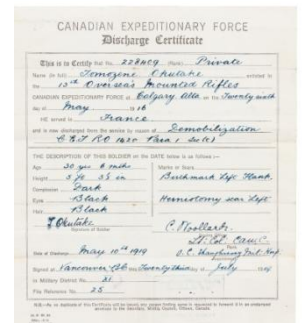 CANADIAN EXPEDITIONARY FORCE
Discharge Certificate
This is to Certify that No. 228409 (Rank) Private
Name (in full) Tomozone Okutake enlisted in
the 13th Overseas Mounted Rifles
CANADIAN EXPEDITIONARY FORCE at Calgary Alta on the Twenty sixth
day of May 1916
HE served in France
and is now discharged from the service by reason of Demobilization
THE DESCRIPTION OF THIS SOLDIER on the DATE below is as follows:—
Age 30 yrs 6 mths
Height
Complexion Dark
Eyes Black
Hair Black
Marks or Scars
Birthmark Left Flank
scar Left
T Okutake
Signature of Soldier
C. Woollard
Lt. Col. C.A.M.C.
O.C.
Date of Discharge May 10th 1919
Signed at Vancouver this day of July 1919
in Military District No.
File Reference No. 25